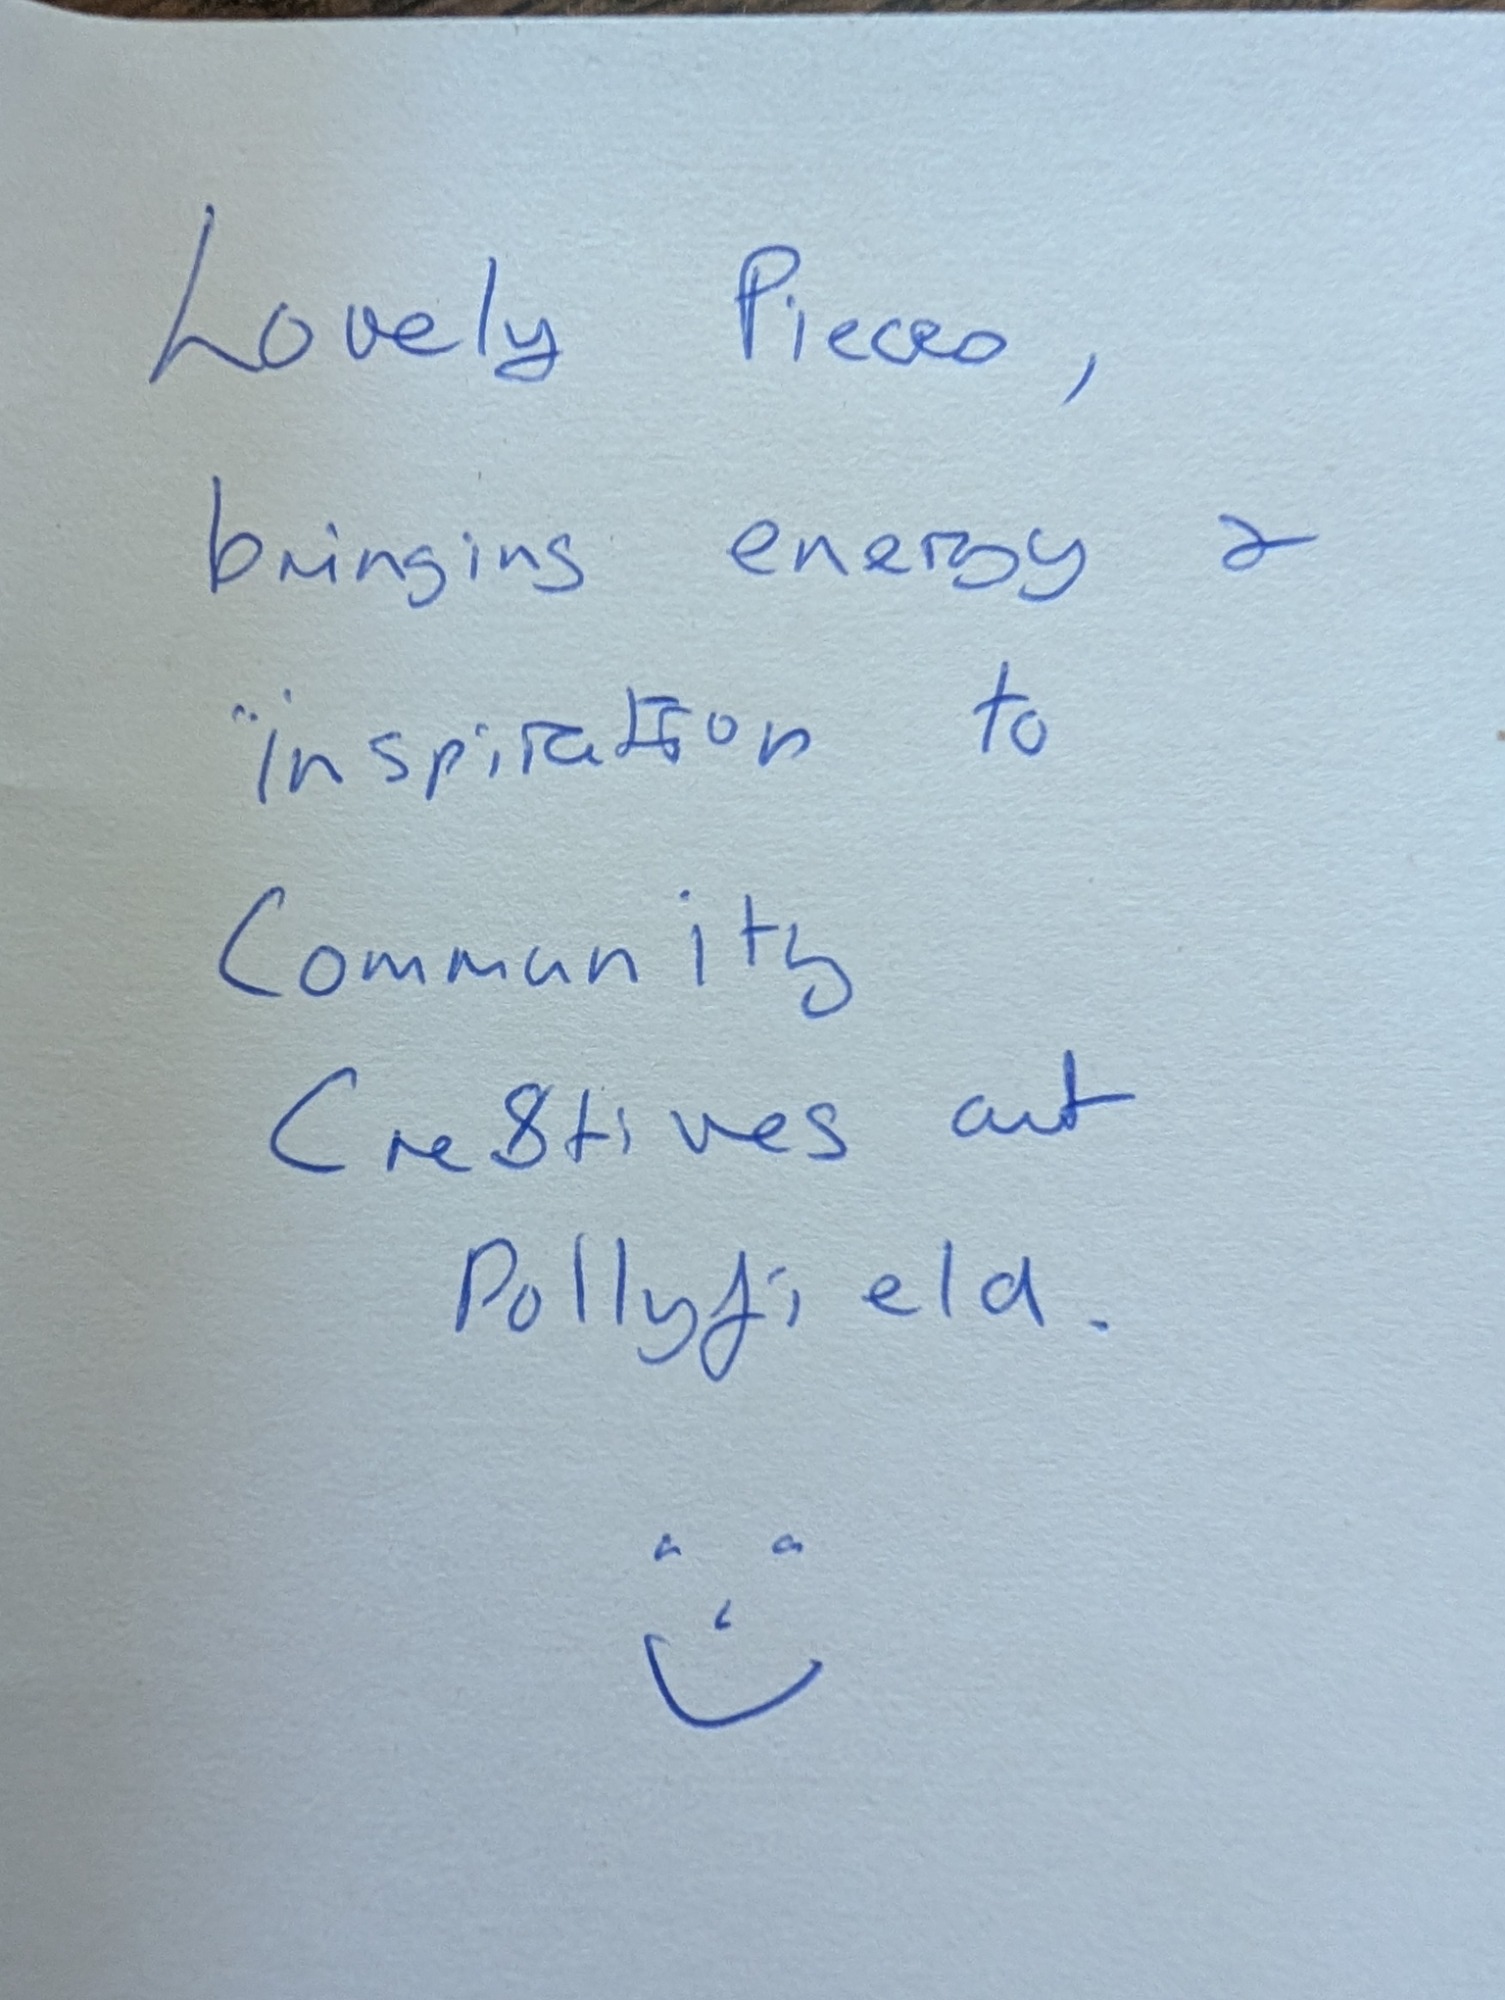 Lovely Pieces,
bringing energy &
inspiration to
Community
Cre8tives art
Pollyfield.